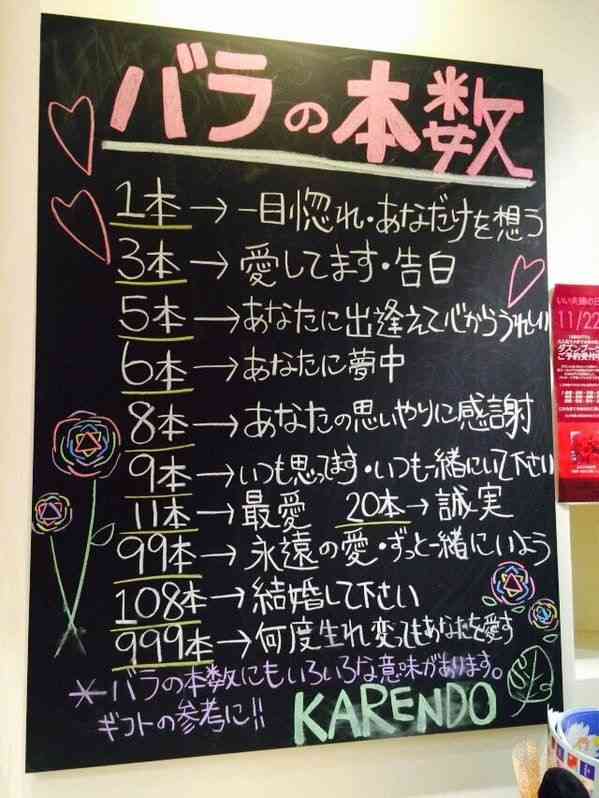 バラの本数
1本→一目惚れ・あなただけを想う
3本→愛してます・告白
5本→あなたに出逢えて心からうれしい
6本→あなたに夢中
8本→あなたの思いやりに感謝
9本→いつも思ってます・いつも一緒にいて下さい
11本→最愛 20本→誠実
99本→永遠の愛・ずっと一緒にいよう
108本→結婚して下さい
999本→何度生れ変ってもあなたを愛す
＊バラの本数にもいろいろな意味があります。
ギフトの参考に!!
KARENDO
いい夫婦の日
11/22
ダズンブーケ
ご予約受付中